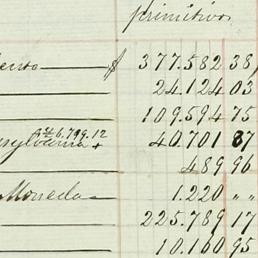 primitivos
$ 377.582 38
24.124 03
109.594 75
6.799.12
sylvania + 40.701 87
489 96
Moneda 1.220 " "
225.789 17
10.160 95